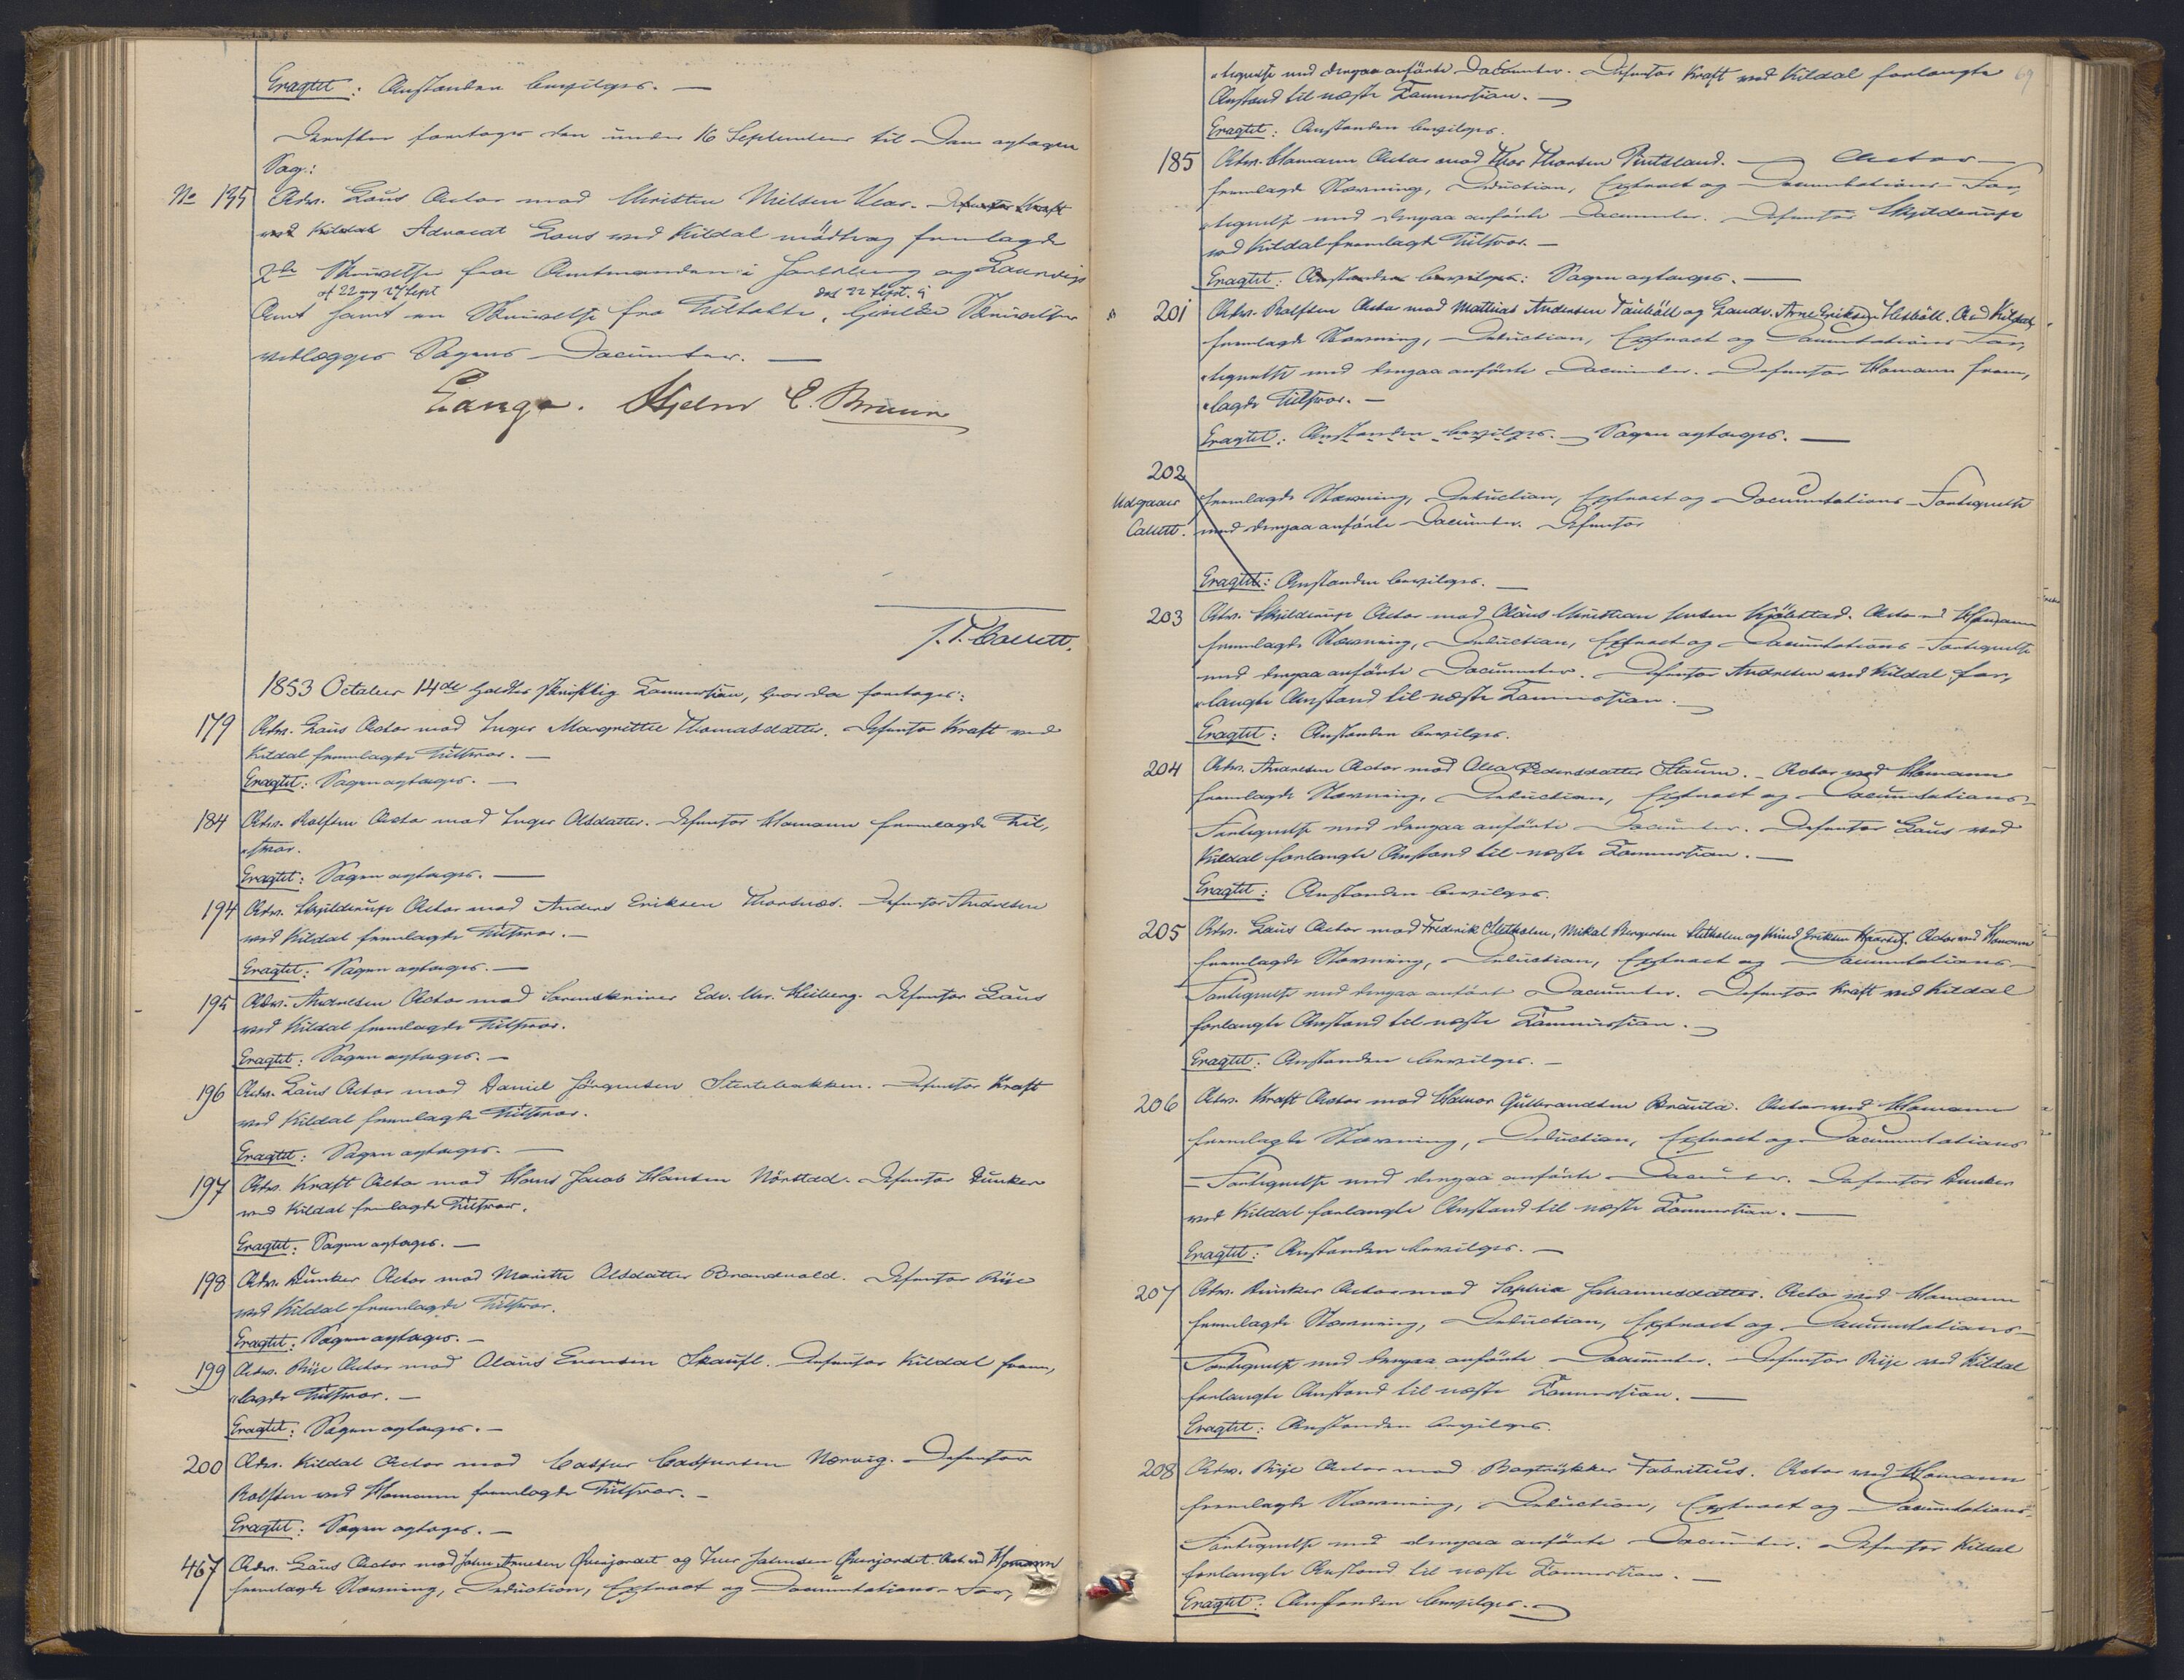 Eragtet: Anstanden bevilges. —
Derefter foretoges den under 16 September til Dom optagen
Sag:
No 135 Adv. Lous Actor mod Christen Nilsen Klar. Defensor Kraft
ved Kildal Advocat Lous ved Kildal mödtog fremlagde
2de Skrivelser fra Amtmanden i Jarlsberg og Laurvigs
af 22 og 27 Sept
dat 22 Sept.
Amt samt en Skrivelse fra Tiltalte, hvilke Skrivelser
vedlægges Sagens Documenter. —
Lange. Hjelm E. Bruun
J. T. Cauett.
1853 October 14de holdtes skriftlig Commission, hvor da foretoges:
179 Adv. Lous Actor mod Inger Margrethe Thomasdatter. Defensor Kraft ved
Kildal fremlagde Tilsvar. —
Eragtet: Sagen optages. —
184 Adv. Rolfsen Actor mod Inger Olsdatter. Defensor Homann fremlagde Til,
„svar.
Eragtet: Sagen optages. —
194 Adv. Skjilderup Actor mod Anders Eriksen Thorsnæs. Defensor Andresen
ved Kildal fremlagde Tilsvar. —
Eragtet: Sagen optages. —
195 Adv. Andresen Actor mod Sorenskriver Edv. Chr. Heiberg. Defensor Lous
ved Kildal fremlagde Tilsvar.
Eragtet: Sagen optages. —
196 Adv. Lous Actor mod Daniel Jörgensen Stertebakken. Defensor Kraft
ved Kildal fremlagde Tilsvar.
Eragtet: Sagen optages. —
197 Adv. Kraft Actor mod Hans Jacob Hansen Nörstad. Defensor Dunker
ved Kildal fremlagde Tilsvar.
Eragtet: Sagen optages. —
198 Adv. Dunker Actor mod Marithe Olsdatter Brandvold. Defensor Rije
ved Kildal fremlagde Tilsvar.
Eragtet: Sagen optages. —
199 Adv. Rije Actor mod Olaus Evensen Skaufl. Defensor Kildal frem,
„lagde Tilsvar. —
Eragtet: Sagen optages. —
200 Adv. Kildal Actor mod Casper Caspersen Norvig. Defensor
Rolfsen ved Homann fremlagde Tilsvar. —
Eragtet: Sagen optages. —
467 Adv. Lous Actor mod John Arnesen Qvenjordet og Iver Johnsen Qvenjordet. Act. ved Homann
fremlagde Stævning, Deduction, Extract og Documentations-For,
69
„tegnelse med derpaa anförte Documenter. Defensor Kraft ved Kildal forlangte
Anstand til næste Commission. —
Eragtet: Anstanden bevilges.
185 Adv. Homann Actor mod Thor Thorsen Pintsland. — Actor —
fremlagde Stævning, Deduction, Extract og Documentations-For,
„tegnelse med derpaa anförte Documenter. Defensor Skjilderup
ved Kildal fremlagde Tilsvar. —
Eragtet: Anstanden bevilges: Sagen optages. —
201 Adv. Rolfsen Actor mod Mathias Andersen Tauböll og Landv. Arne Eriksen Hesböll. Act. ved Kildal
fremlagde Stævning, Deduction, Extract og Documentations For,
„tegnelse med derpaa anförte Documenter. Defensor Homann frem,
„lagde Tilsvar. —
Eragtet: Anstanden bevilges. — Sagen optages. —
202
Udgaaer
Cauett.
fremlagde Stævning, Deduction, Extract og Documentations-Fortegnelse
med derpaa anförte Documenter. Defensor
Eragtet: Anstanden bevilges. —
203 Adv. Skjilderup Actor mod Olaus Christian Jensen Kjölstad. Actor ved Homann
fremlagde Stævning, Deduction, Extract og Documentations-Fortegnelse
med derpaa anförte Documenter. Defensor Andresen ved Kildal for,
„langte Anstand til næste Commission. —
Eragtet: Anstanden bevilges.
204 Adv. Andresen Actor mod Olea Pedersdatter Staum. Actor ved Homann
fremlagde Stævning, Deduction, Extract og Documentations-
Fortegnelse med derpaa anförte Documenter. Defensor Lous ved
Kildal forlangte Anstand til næste Commission. —
Eragtet: Anstanden bevilges.
205 Adv. Lous Actor mod Frederik Sletholen, Mikal Bergersen Sletholen og Knud Eriksen. Actor ved Homann
fremlagde Stævning, Deduction, Extract og Documentations-
Fortegnelse med derpaa anförte Documenter. Defensor Kraft ved Kildal
forlangte Anstand til næste Commission. —
Eragtet: Anstanden bevilges. —
206 Adv. Kraft Actor mod Halvor Gulbrandsen Bräuta. Actor ved Homann
fremlagde Stævning, Deduction, Extract og Documentations
-Fortegnelse med derpaa anförte Documenter. Defensor Dunker
ved Kildal forlangte Anstand til næste Commission. —
Eragtet: Anstanden bevilges. —
207 Adv. Dunker Actor mod Sophia Johannesdatter. Actor ved Homann
fremlagde Stævning, Deduction, Extract og Documentations-
Fortegnelse med derpaa anförte Documenter. Defensor Rije ved Kildal
forlangte Anstand til næste Commission. —
Eragtet: Anstanden bevilges.
208 Adv. Rije Actor mod Bogtrykker Fabritius. Actor ved Homann
fremlagde Stævning, Deduction, Extract og Documentations-
Fortegnelse med derpaa anförte Documenter. Defensor Kildal
forlangte Anstand til næste Commission. —
Eragtet: Anstanden bevilges. —